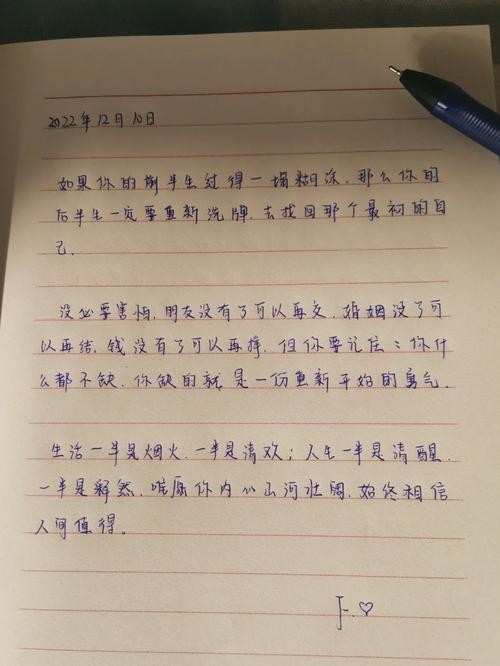 2022年12月10日
如果你的前半生过得一塌糊涂,那么你的
后半生一定要重新洗牌,去找回那个最初的自
己.
没必要害怕,朋友没有了可以再交,婚姻没了可
以再结,钱没有了可以再挣,但你要记住:你什
么都不缺,你缺的就是一份重新开始的勇气.
生活一半是烟火,一半是清欢;人生一半是清醒,
一半是释然,唯愿你内心山河壮阔,始终相信
人间值得。